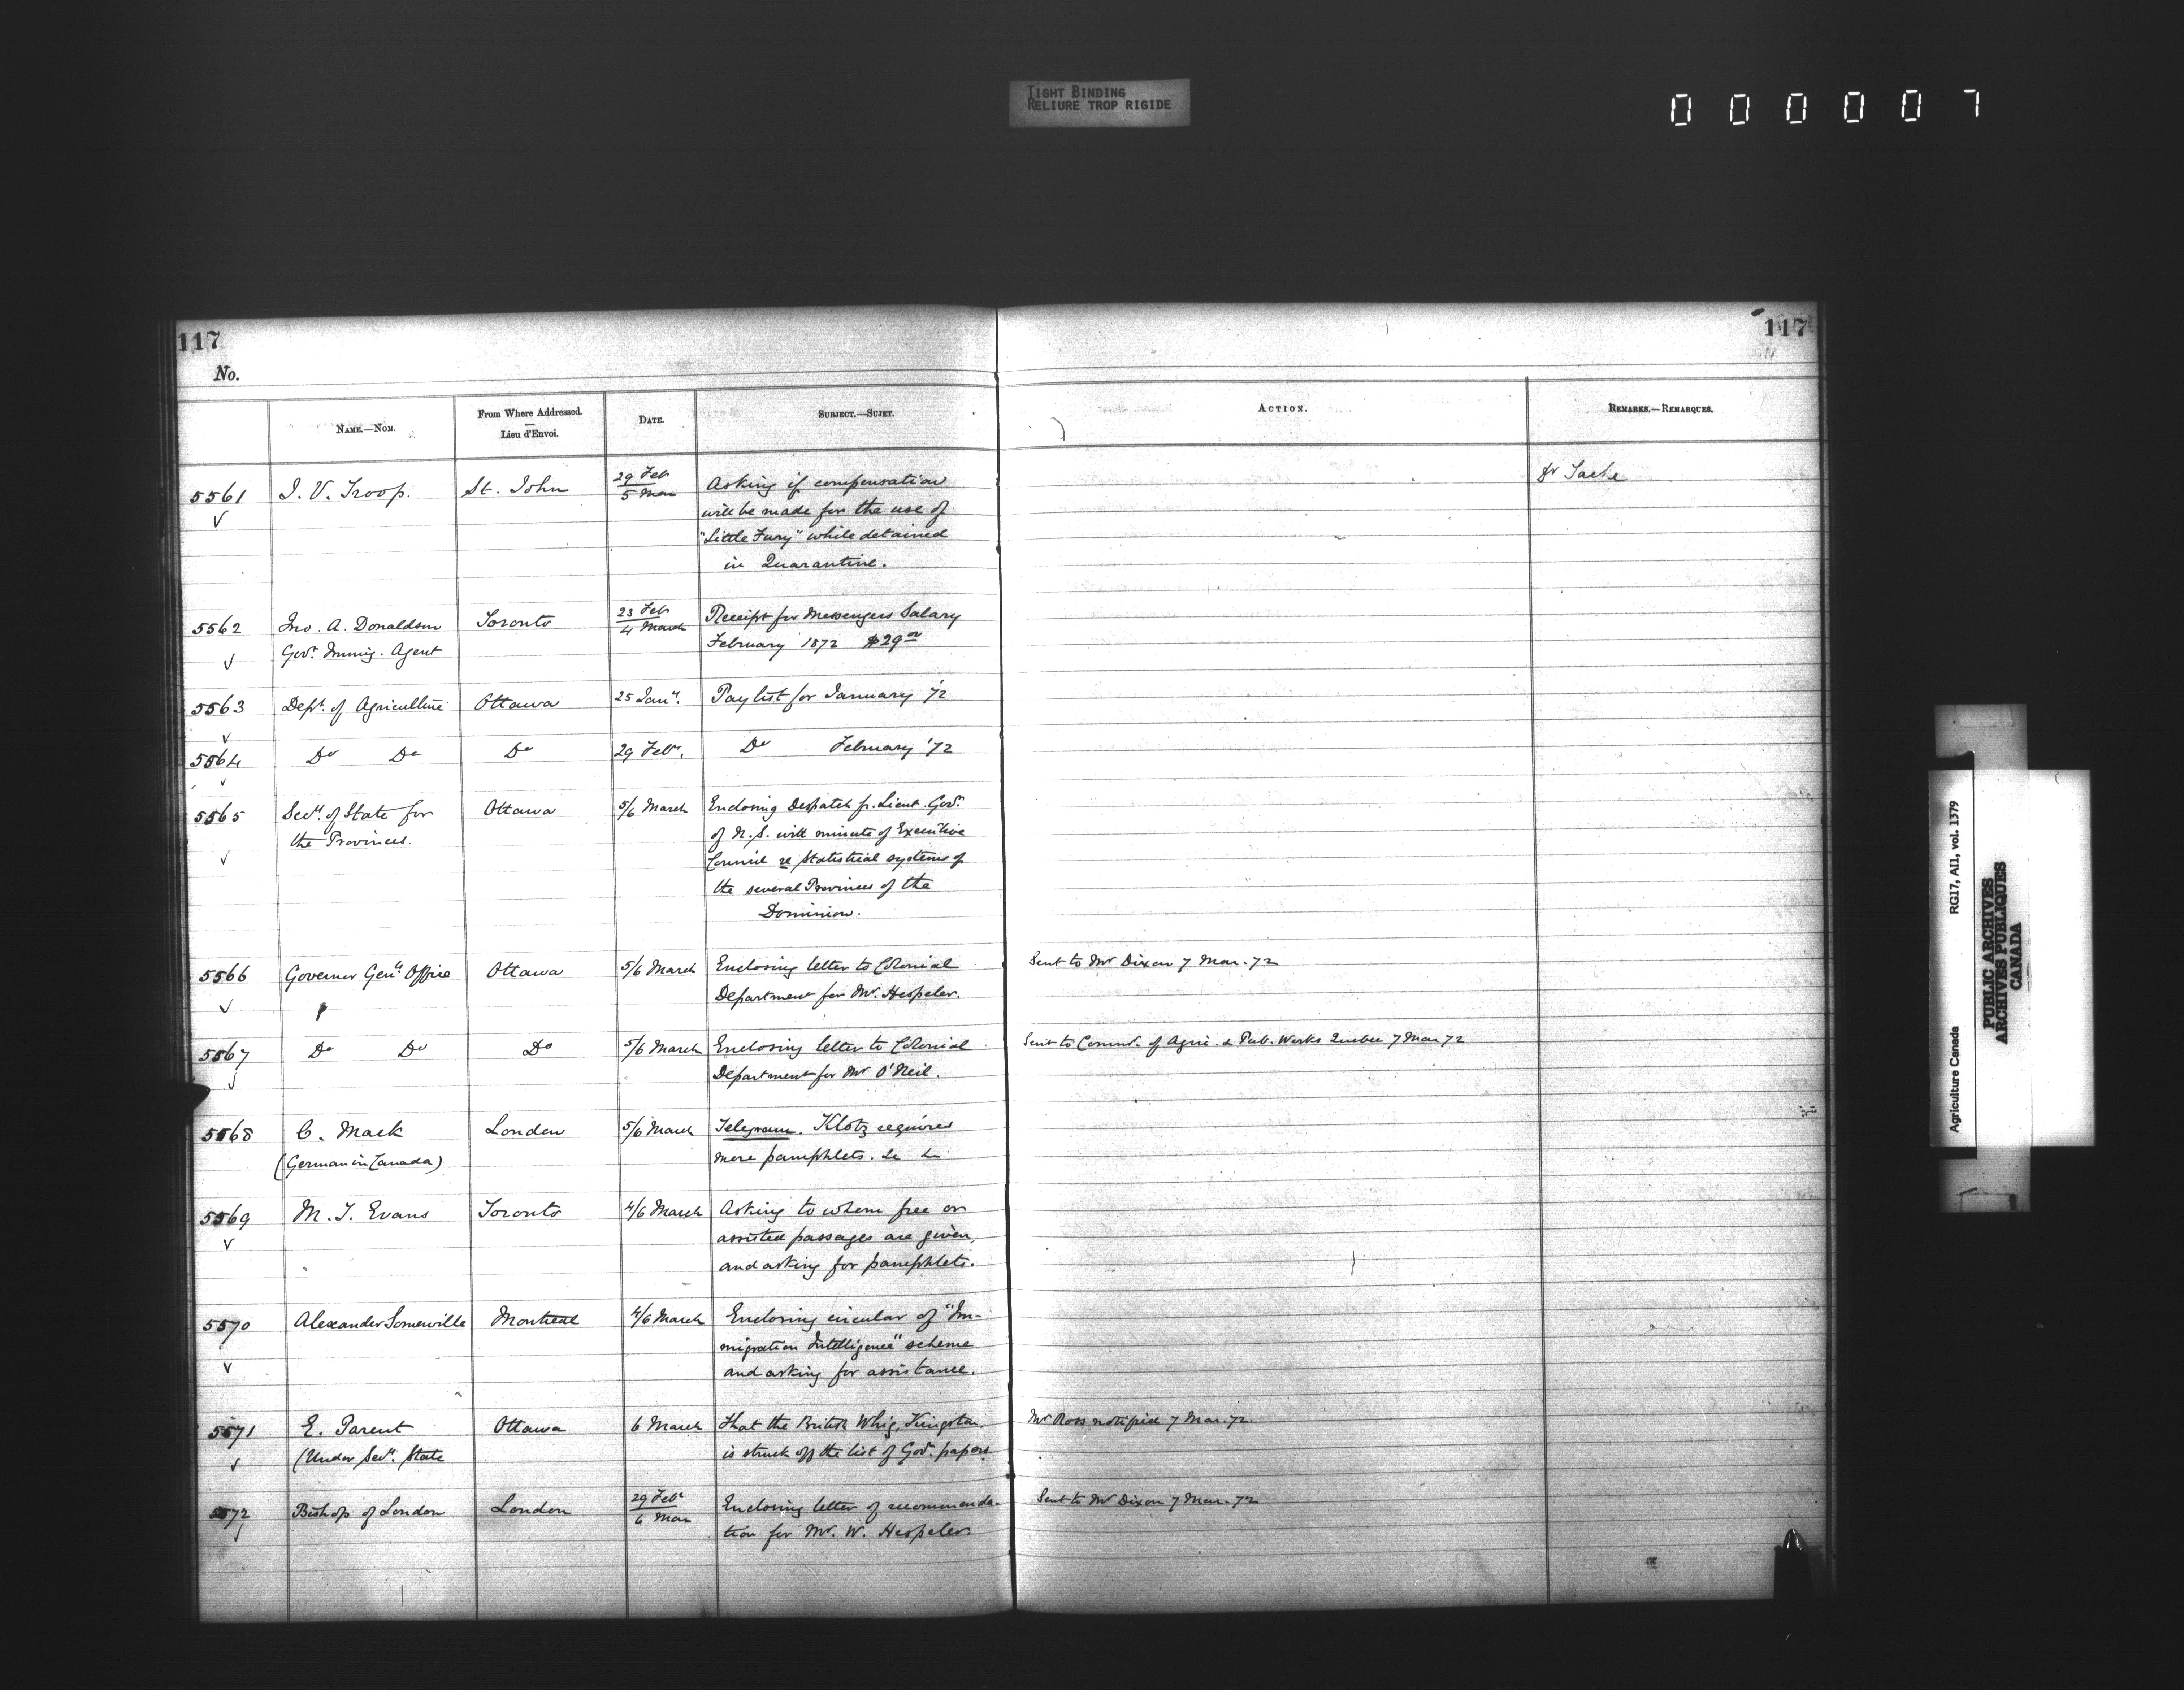 TIGHT BINDING
RELIURE TROP RIGIDE
0 0 0 0 0 7
117
117
No.
NAME.—NOM.
From Where Addressed.
—
Lieu d'Envoi.
DATE.
SUBJECT.—SUJET.
ACTION.
REMARKS.—REMARQUES.
5561 I. V. Troop. St. John 29 Feb Asking if compensation
5 Mar will be made for the use of
"Little Fury" while detained
in Quarantine.
Dr Taché
5562 Jno. A. Donaldson Toronto 23 Feb Receipt for Messengers Salary
Govt. Immig. Agent 4 March February 1872 $29 00
5563 Dept. of Agriculture Ottawa 25 Jany. Pay list for January '72
5564 Do Do Do 29 Feby. Do February '72
5565 Secy. of State for Ottawa 5/6 March Enclosing Despatch fr. Lieut. Govr.
the Provinces. of N.S. with minute of Executive
Council re Statistical systems of
the several Provinces of the
Dominion.
5566 Governor Genls. Office Ottawa 5/6 March Enclosing letter to Colonial Sent to Mr Dixon 7 Mar. 72
Department for Mr. Hespeler.
5567 Do Do Do 5/6 March Enclosing letter to Colonial Sent to Commr. of Agri. & Pub. Works Quebec 7 Mar 72
Department for Mr O'Neil.
5568 C. Mack London 5/6 March Telegram. Klotz requires
(German in Canada) more pamphlets. &c &c
5569 M. J. Evans Toronto 4/6 March Asking to whom free or
assisted passages are given,
and asking for pamphlets.
5570 Alexander Somerville Montreal 4/6 March Enclosing circular of "Im-
migration Intelligence" scheme
and asking for assistance.
5571 E. Parent Ottawa 6 March That the British Whig, Kingston Mr Ross notified 7 Mar. 72.
(Under Secy. State is struck off the list of Govt. papers
5572 Bishop of London London 29 Feby Enclosing letter of recommenda- Sent to Mr Dixon 7 Mar. 72
6 Mar tion for Mr. W. Hespeler
Agriculture Canada RG17, AI1, vol. 1379
PUBLIC ARCHIVES
ARCHIVES PUBLIQUES
CANADA